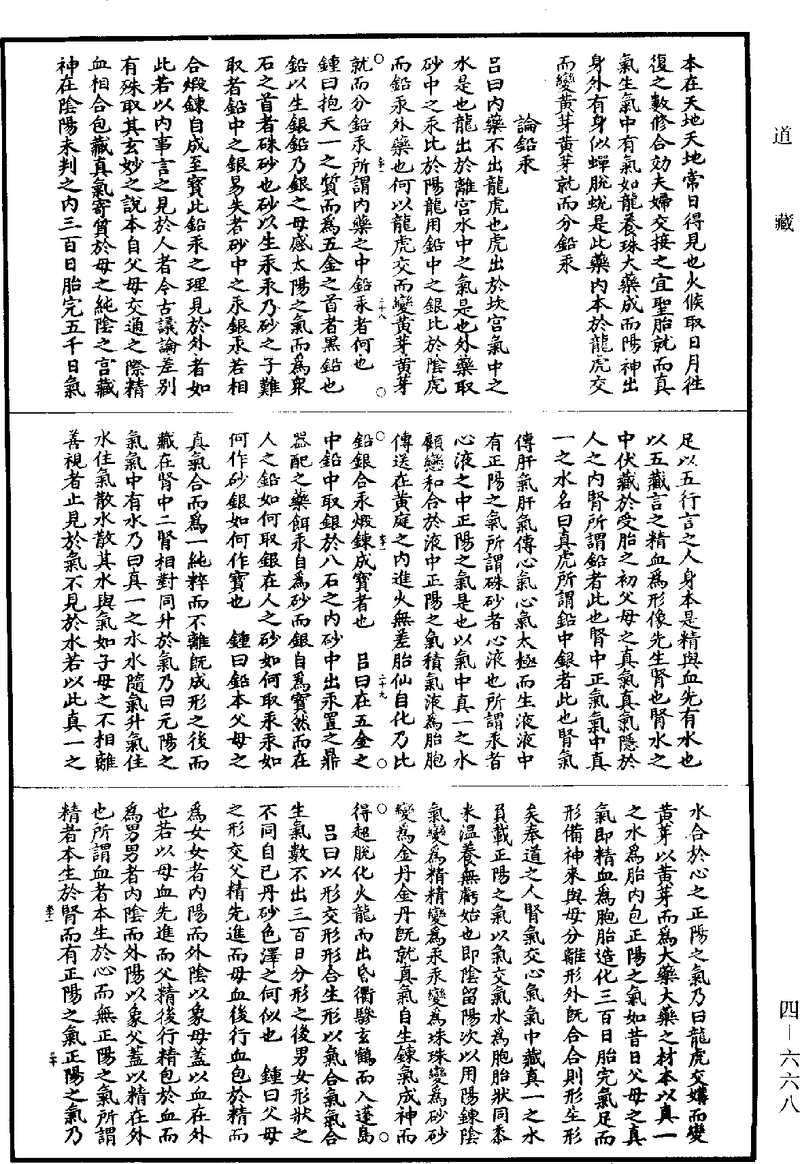 道藏
本在天地天地常日得見也火候取日月徃
復之數修合効夫婦交接之宜聖胎就而真
氣生氣中有氣如龍養珠大藥成而陽神出
身外有身似蟬脫蛻是此藥内本於龍虎交
而變黄芽黄芽就而分鉛汞
論鉛汞
吕曰内藥不出龍虎也虎出於坎宫氣中之
水是也龍出於離宫水中之氣是也外藥取
砂中之汞比於陽龍用鉛中之銀比於陰虎
而鉛汞外藥也何以龍虎交而變黄芽黄芽
就而分鉛汞所謂内藥之中鉛汞者何也
鍾曰抱天一之質而為五金之首者黑鉛也
鉛以生銀鉛乃銀之母感太陽之氣而為衆
石之首者硃砂也砂以生汞汞乃砂之子難
取者鉛中之銀易失者砂中之汞銀汞若相
合煅鍊自成至寶此鉛汞之理見於外者如
此若以内事言之見於人者今古議論差别
有殊取其玄妙之說本自父母交通之際精
血相合包藏真氣寄質於母之純陰之宫藏
神在陰陽未判之内三百日胎完五千日氣
足以五行言之人身本是精與血先有水也
以五藏言之精血為形像先生腎也腎水之
中伏藏於受胎之初父母之真氣真氣隱於
人之内腎所謂鉛者此也腎中正氣氣中真
一之水名曰真虎所謂鉛中銀者此也腎氣
傳肝氣肝氣傳心氣心氣太極而生液液中
有正陽之氣所謂硃砂者心液也所謂汞者
心液之中正陽之氣是也以氣中真一之水
顧戀和合於液中正陽之氣積氣液為胎胞
傳送在黄庭之内進火無差胎仙自化乃比
鉛銀合汞煅鍊成寶者也　吕曰在五金之
中鉛中取銀於八石之内砂中出汞置之鼎
器配之藥餌汞自為砂而銀自為寶然而在
人之鉛如何取銀在人之砂如何取汞汞如
何作砂銀如何作寶也　鍾曰鉛本父母之
真氣合而為一純粹而不離既成形之後而
藏在腎中二腎相對同升於氣乃曰元陽之
氣氣中有水乃曰真一之水水隨氣升氣住
水住氣散水散其水與氣如子母之不相離
善視者止見於氣不見於水若以此真一之
水合於心之正陽之氣乃曰龍虎交媾而變
黄芽以黄芽而為大藥大藥之材本以真一
之水為胎内包正陽之氣如昔日父母之真
氣即精血為胞胎造化三百日胎完氣足而
形備神来與母分離形外既合合則形生形
矣奉道之人腎氣交心氣氣中藏真一之水
負載正陽之氣以氣交氣水為胞胎狀同黍
米温養無虧始也即陰留陽次以用陽鍊陰
氣變為精精變為汞汞變為珠珠變為砂砂
變為金丹金丹既就真氣自生鍊氣成神而
得超脫化火龍而出昏衢驂玄鶴而入蓬島
吕曰以形交形形合生形以氣合氣氣合
生氣數不出三百日分形之後男女形狀之
不同自己丹砂色澤之何似也　鍾曰父母
之形交父精先進而母血後行血包於精而
為女女者内陽而外陰以象母蓋以血在外
也若以母血先進而父精後行精包於血而
為男男者内陰而外陽以象父蓋以精在外
也所謂血者本生於心而無正陽之氣所謂
精者本生於腎而有正陽之氣正陽之氣乃
四—六六八